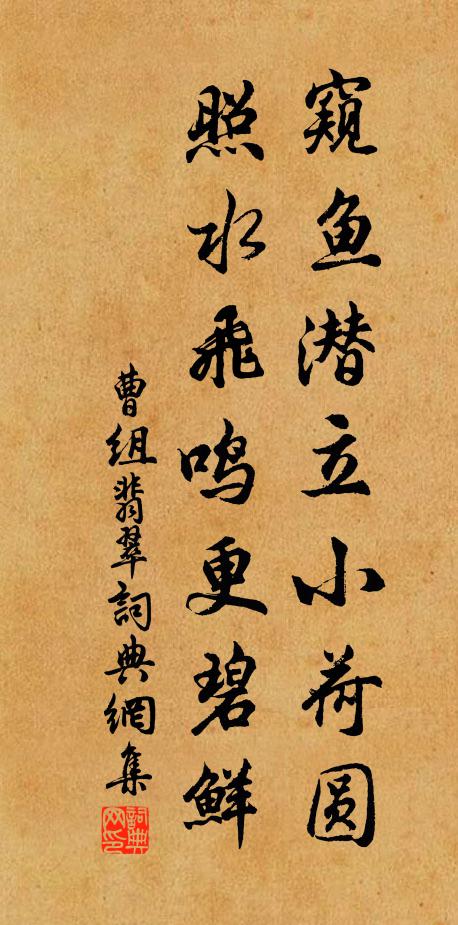 窥鱼潜立小荷圆
照水飞鸣更碧鲜
曹组翡翠詞典網集
詞典
网印